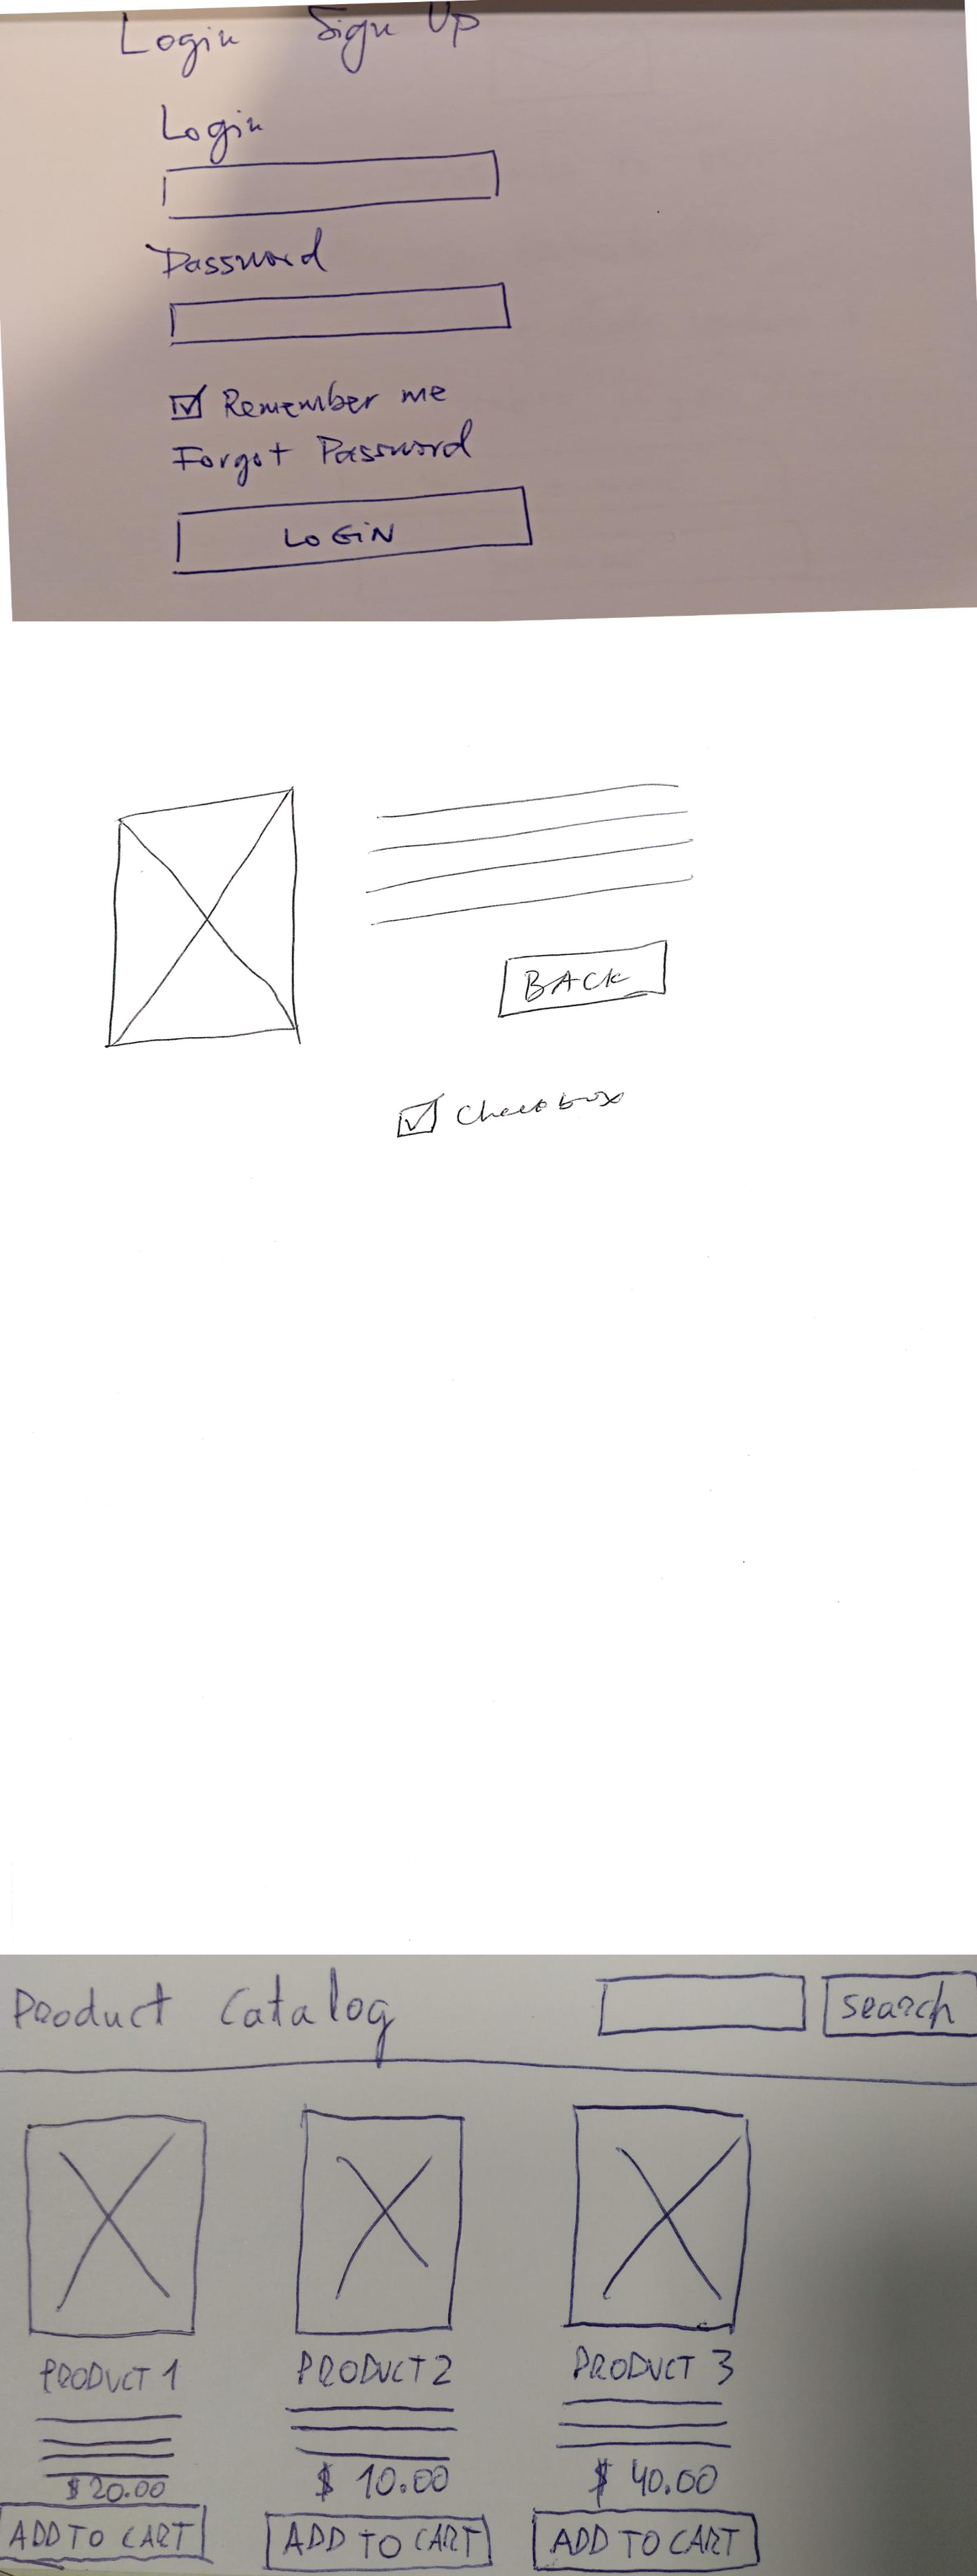 Login Sign Up
Login
Password
Remember me
Forgot Password
LOGIN
BACK
Checkbox
Product Catalog
search
PRODUCT 1 PRODUCT 2 PRODUCT 3
$20.00 $10.00 $40.00
ADD TO CART ADD TO CART ADD TO CART